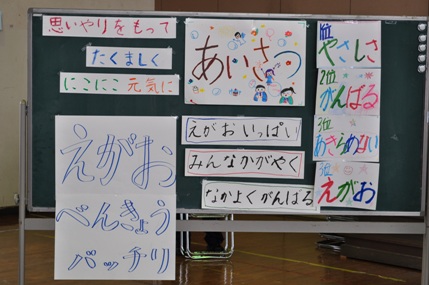 思いやりをもって
たくましく
にこにこ 元気に
えがお
べんきょう
バッチリ
あいさつ
えがおいっぱい
みんなかがやく
なかよくがんばる
1位
やさしさ
2位
がんばる
3位
あきらめない
3位
えがお